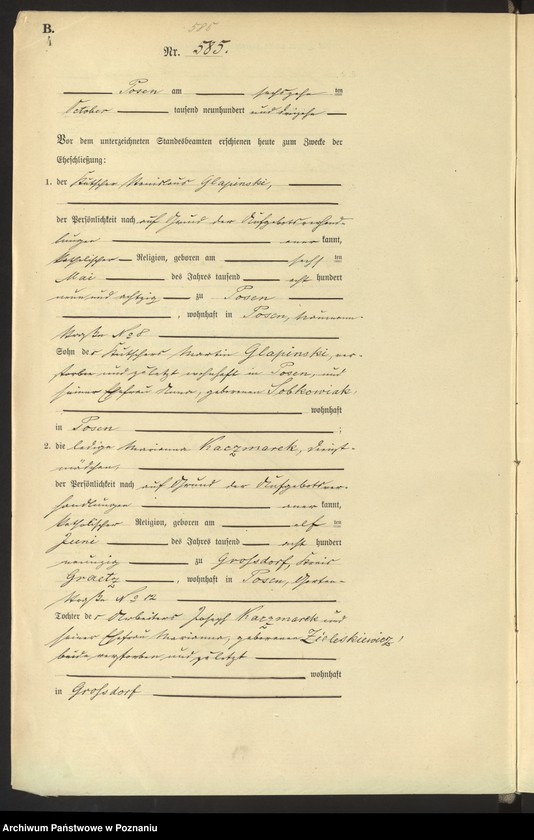 B.
585
Nr. 585.
Posen am sechszehn ten
October tausend neunhundert und dreizehn
Vor dem unterzeichneten Standesbeamten erschienen heute zum Zwecke der
Eheschließung:
1. der Kutscher Stanislaus Glapinski,
der Persönlichkeit nach auf Grund der Aufgebotsverhand-
lungen aner kannt,
katholischer Religion, geboren am sechs ten
Mai des Jahres tausend acht hundert
neun und achtzig zu Posen
, wohnhaft in Posen, Naumann-
straße No 8
Sohn des Kutschers Martin Glapinski, ver-
storben und zuletzt wohnhaft in Posen, und
seiner Ehefrau Anna, geborenen Sobkowiak,
wohnhaft
in Posen ;
2. die ledige Marianna Kaczmarek, Dienst-
mädchen,
der Persönlichkeit nach auf Grund der Aufgebotsver-
handlungen aner kannt,
katholischer Religion, geboren am elf ten
Juni des Jahres tausend acht hundert
neunzig zu Grohsdorf, Kreis
Graetz , wohnhaft in Posen, Garten-
straße No 12
Tochter des Arbeiters Joseph Kaczmarek und
seiner Ehefrau Marianna, geborenen Zieleskiewicz,
beide verstorben und zuletzt
wohnhaft
in Grohsdorf
Archiwum Państwowe w Poznaniu